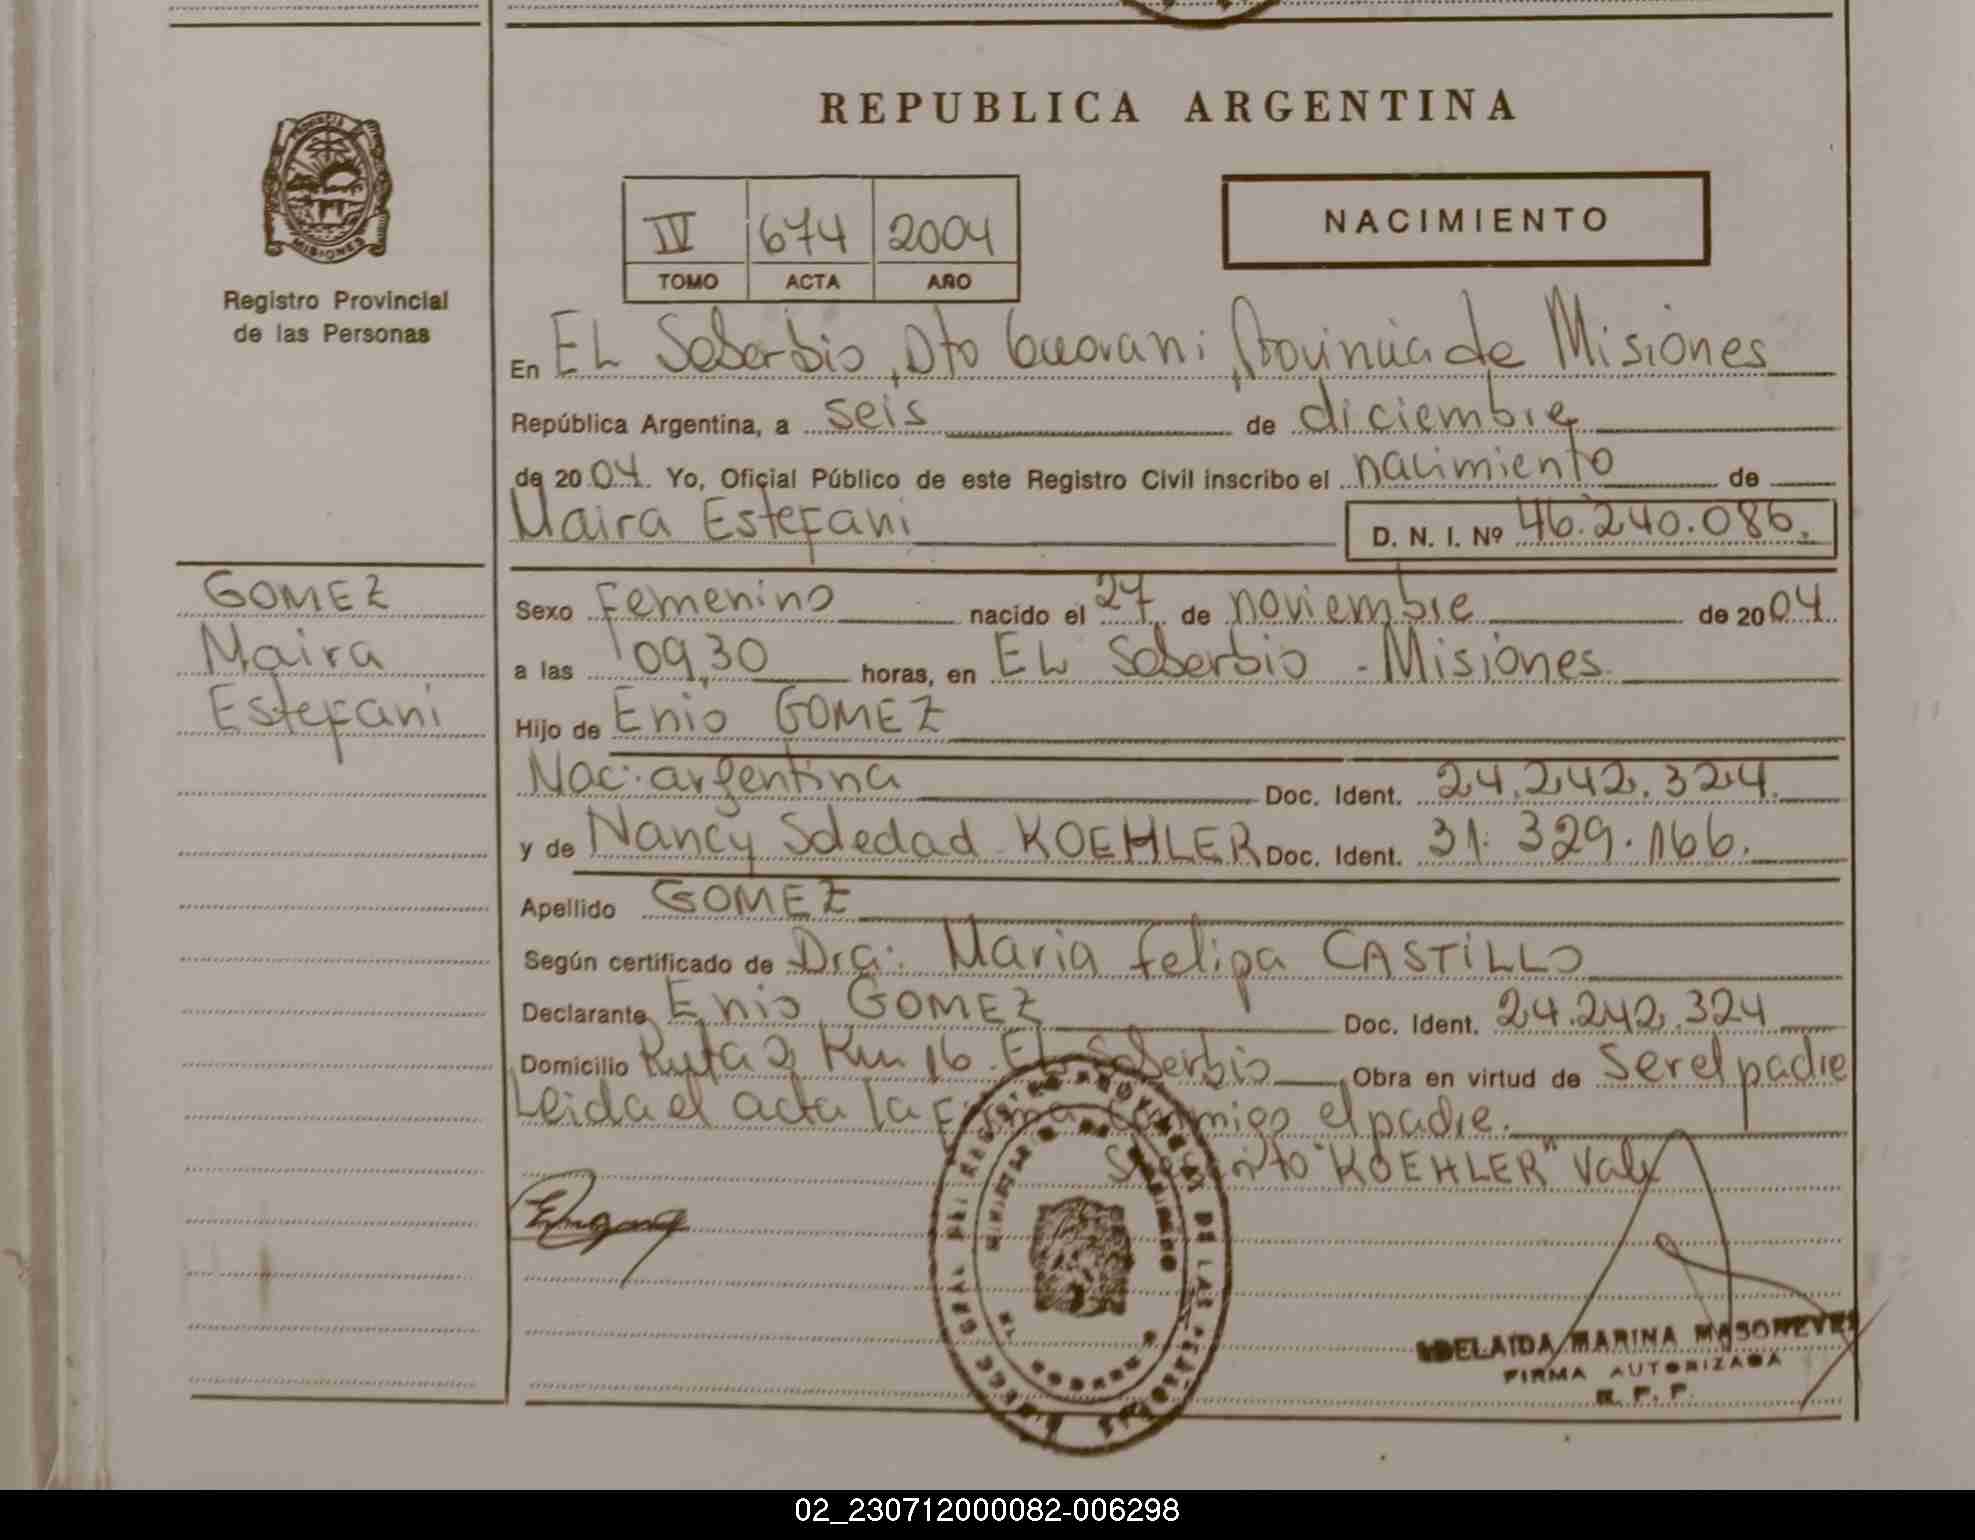 REPUBLICA ARGENTINA
PROVINCIA DE
MISIONES
Registro Provincial
de las Personas
IV 674 2004
TOMO ACTA AÑO
NACIMIENTO
En EL Soberbio, Dto Guarani, Provincia de Misiones
República Argentina, a seis de diciembre
de 2004. Yo, Oficial Público de este Registro Civil inscribo el nacimiento de
Maira Estefani D. N. I. Nº 46.240.086.
GOMEZ
Maira
Estefani
Sexo Femenino nacido el 27 de noviembre de 2004.
a las 09,30 horas, en EL Soberbio - Misiones.
Hijo de Enio GOMEZ
Nac: argentina Doc. Ident. 24.242.324.
y de Nancy Soledad KOEHLER Doc. Ident. 31.329.166.
Apellido GOMEZ
Según certificado de Dra: Maria Felipa CASTILLO
Declarante Enio GOMEZ Doc. Ident. 24.242.324
Domicilio Ruta 2 Km 16. EL Soberbio Obra en virtud de Ser el padre
Leida el acta la Firma conmigo el padre.
"KOEHLER" Vale
ADELAIDA MARINA
FIRMA AUTORIZADA
R. P. P.
02_230712000082-006298